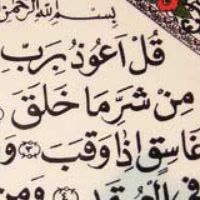 بِسْمِ اللَّهِ الرَّحْمَنِ
قُلْ اَعُوذُ بِرَبِّ
مِنْ شَرِّ مَا خَلَقَ
غَاسِقٍ اِذَا وَقَبَ ﴿٣﴾ وَ
فِى الْعُقَدِ ﴿٤﴾ وَمِنْ